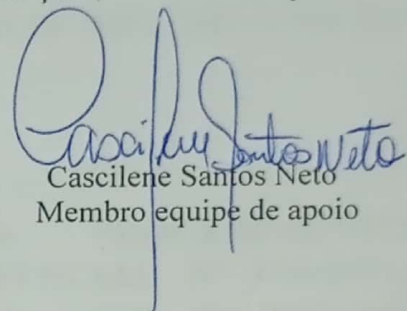 Cascilene Santos Neto
Cascilene Santos Neto
Membro equipe de apoio